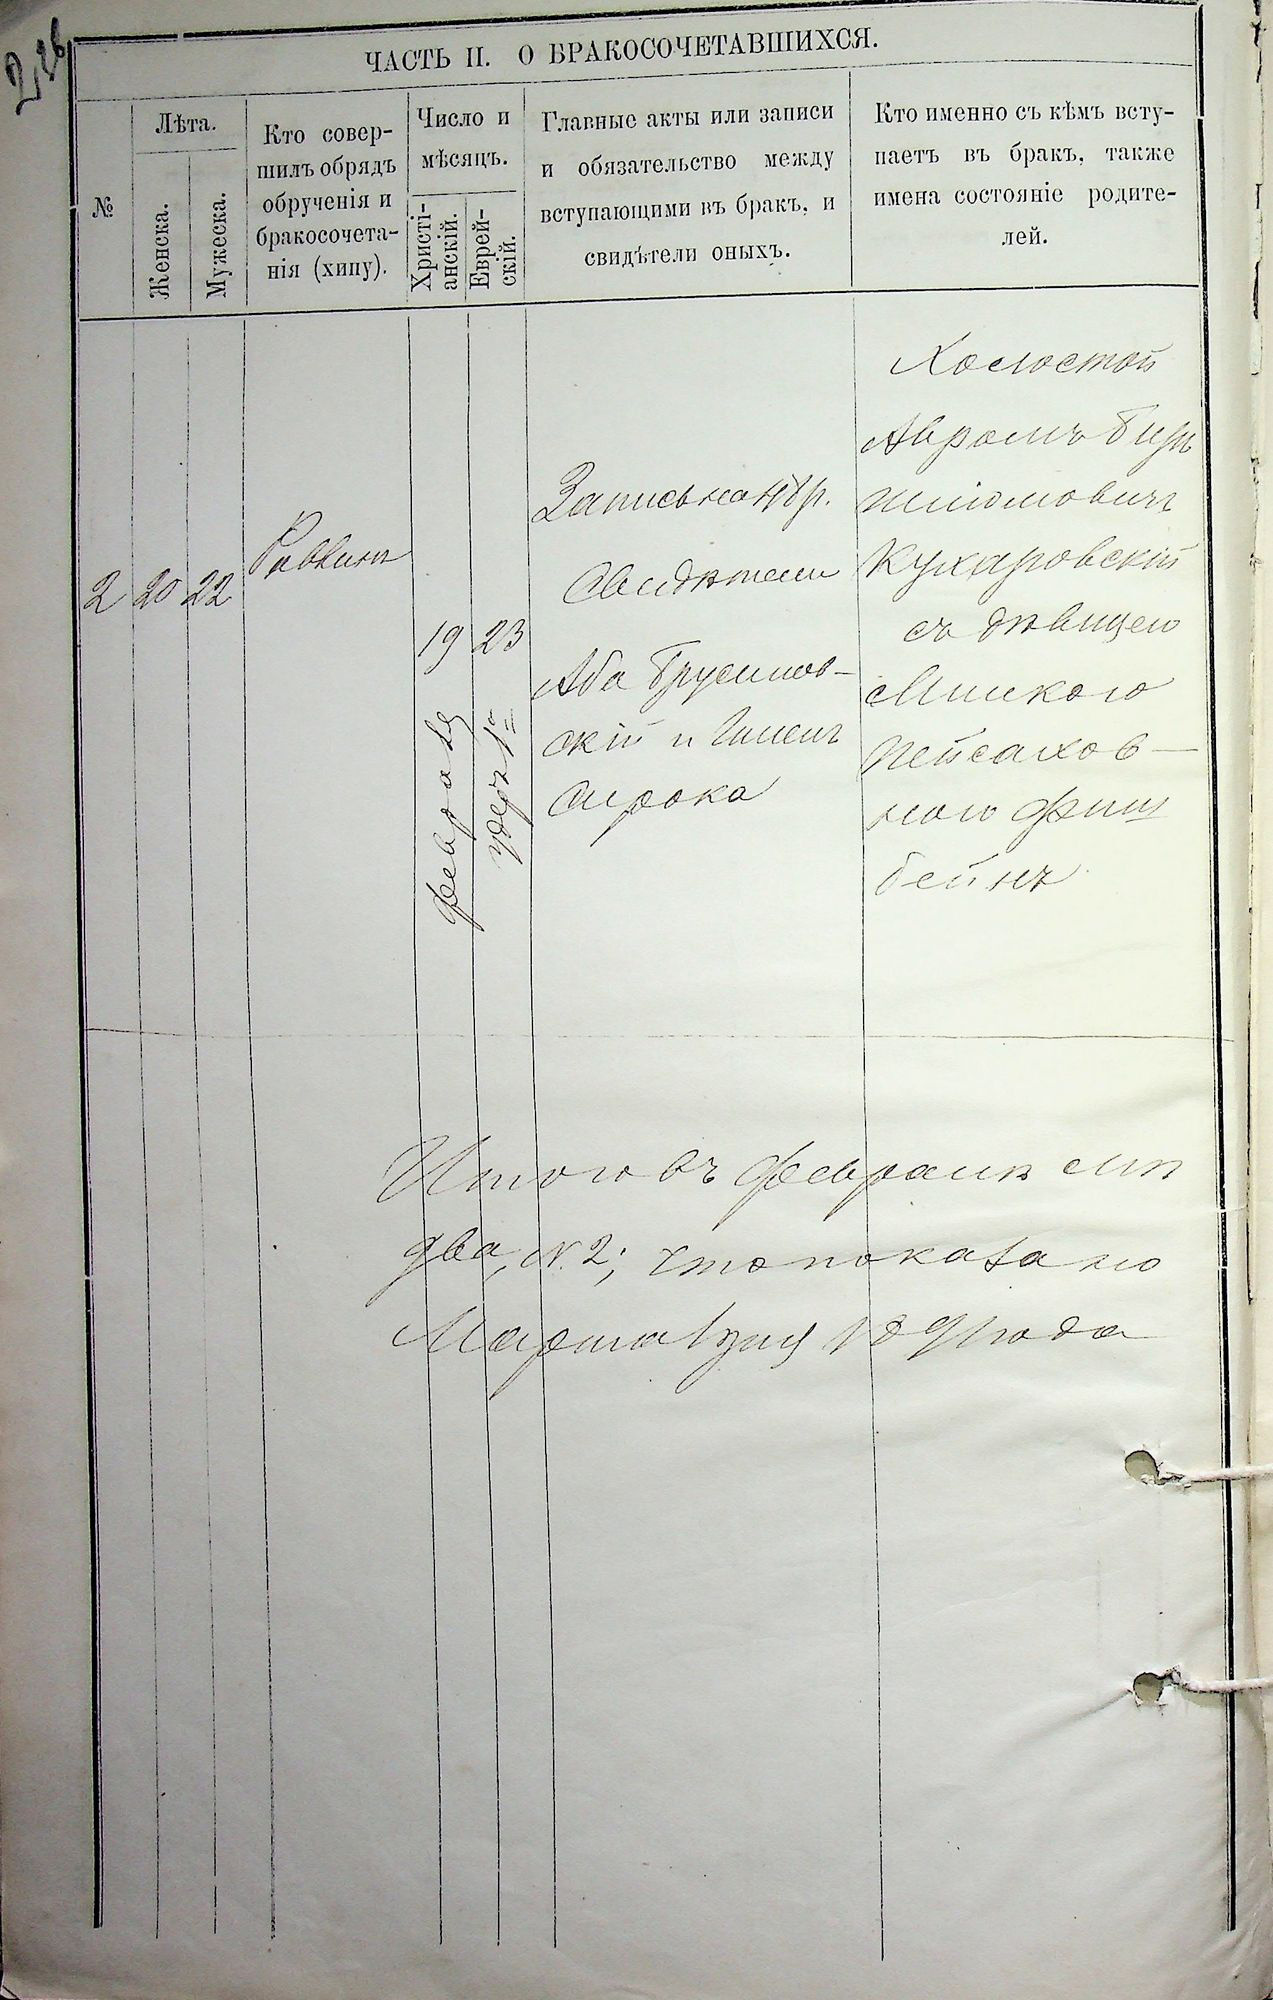 ЧАСТЬ II. О БРАКОСОЧЕТАВШИХСЯ.
№
Лѣта.
Женска.
Мужеска.
Кто совер-
шилъ обрядъ
обрученія и
бракосочета-
нія (хипу).
Число и
мѣсяцъ.
Христі-
анскій.
Еврей-
скій.
Главные акты или записи
и обязательство между
вступающими въ бракъ, и
свидѣтели оныхъ.
Кто именно съ кѣмъ всту-
паетъ въ бракъ, также
имена состояніе родите-
лей.
2
20
22
Раввинъ
19
февраля
23
Запись на 48 р.
Свидѣтели
Аба Брусилов-
скій и
Сирока
Холостой
Аврамъ Беръ
Шліомовичъ
Кухаровскій
съ дѣвицею
Пейсахов-
ною Фиш
бейнъ
Итого въ февралѣ мцѣ
два, N. 2; что показано
Марта 1 дня года